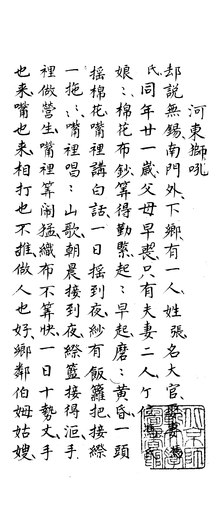 河東獅吼
却説無錫南門外下鄉有一人姓張名大官娶妻
氏同年廿一歲父母早喪只有夫妻二人
娘棉花布鈔算得勤緊起早磨黄昏一頭
摇棉花嘴裡講白話一日摇到夜紗有飯籮把接縧
一拖嘴裡唱山歌朝晨接到夜縧籃接得洭手
裡做營生嘴裡算鬧猛織布不算快一日十勢丈手
也来嘴也来相打也不推做人也好鄉鄰伯姆姑嫂